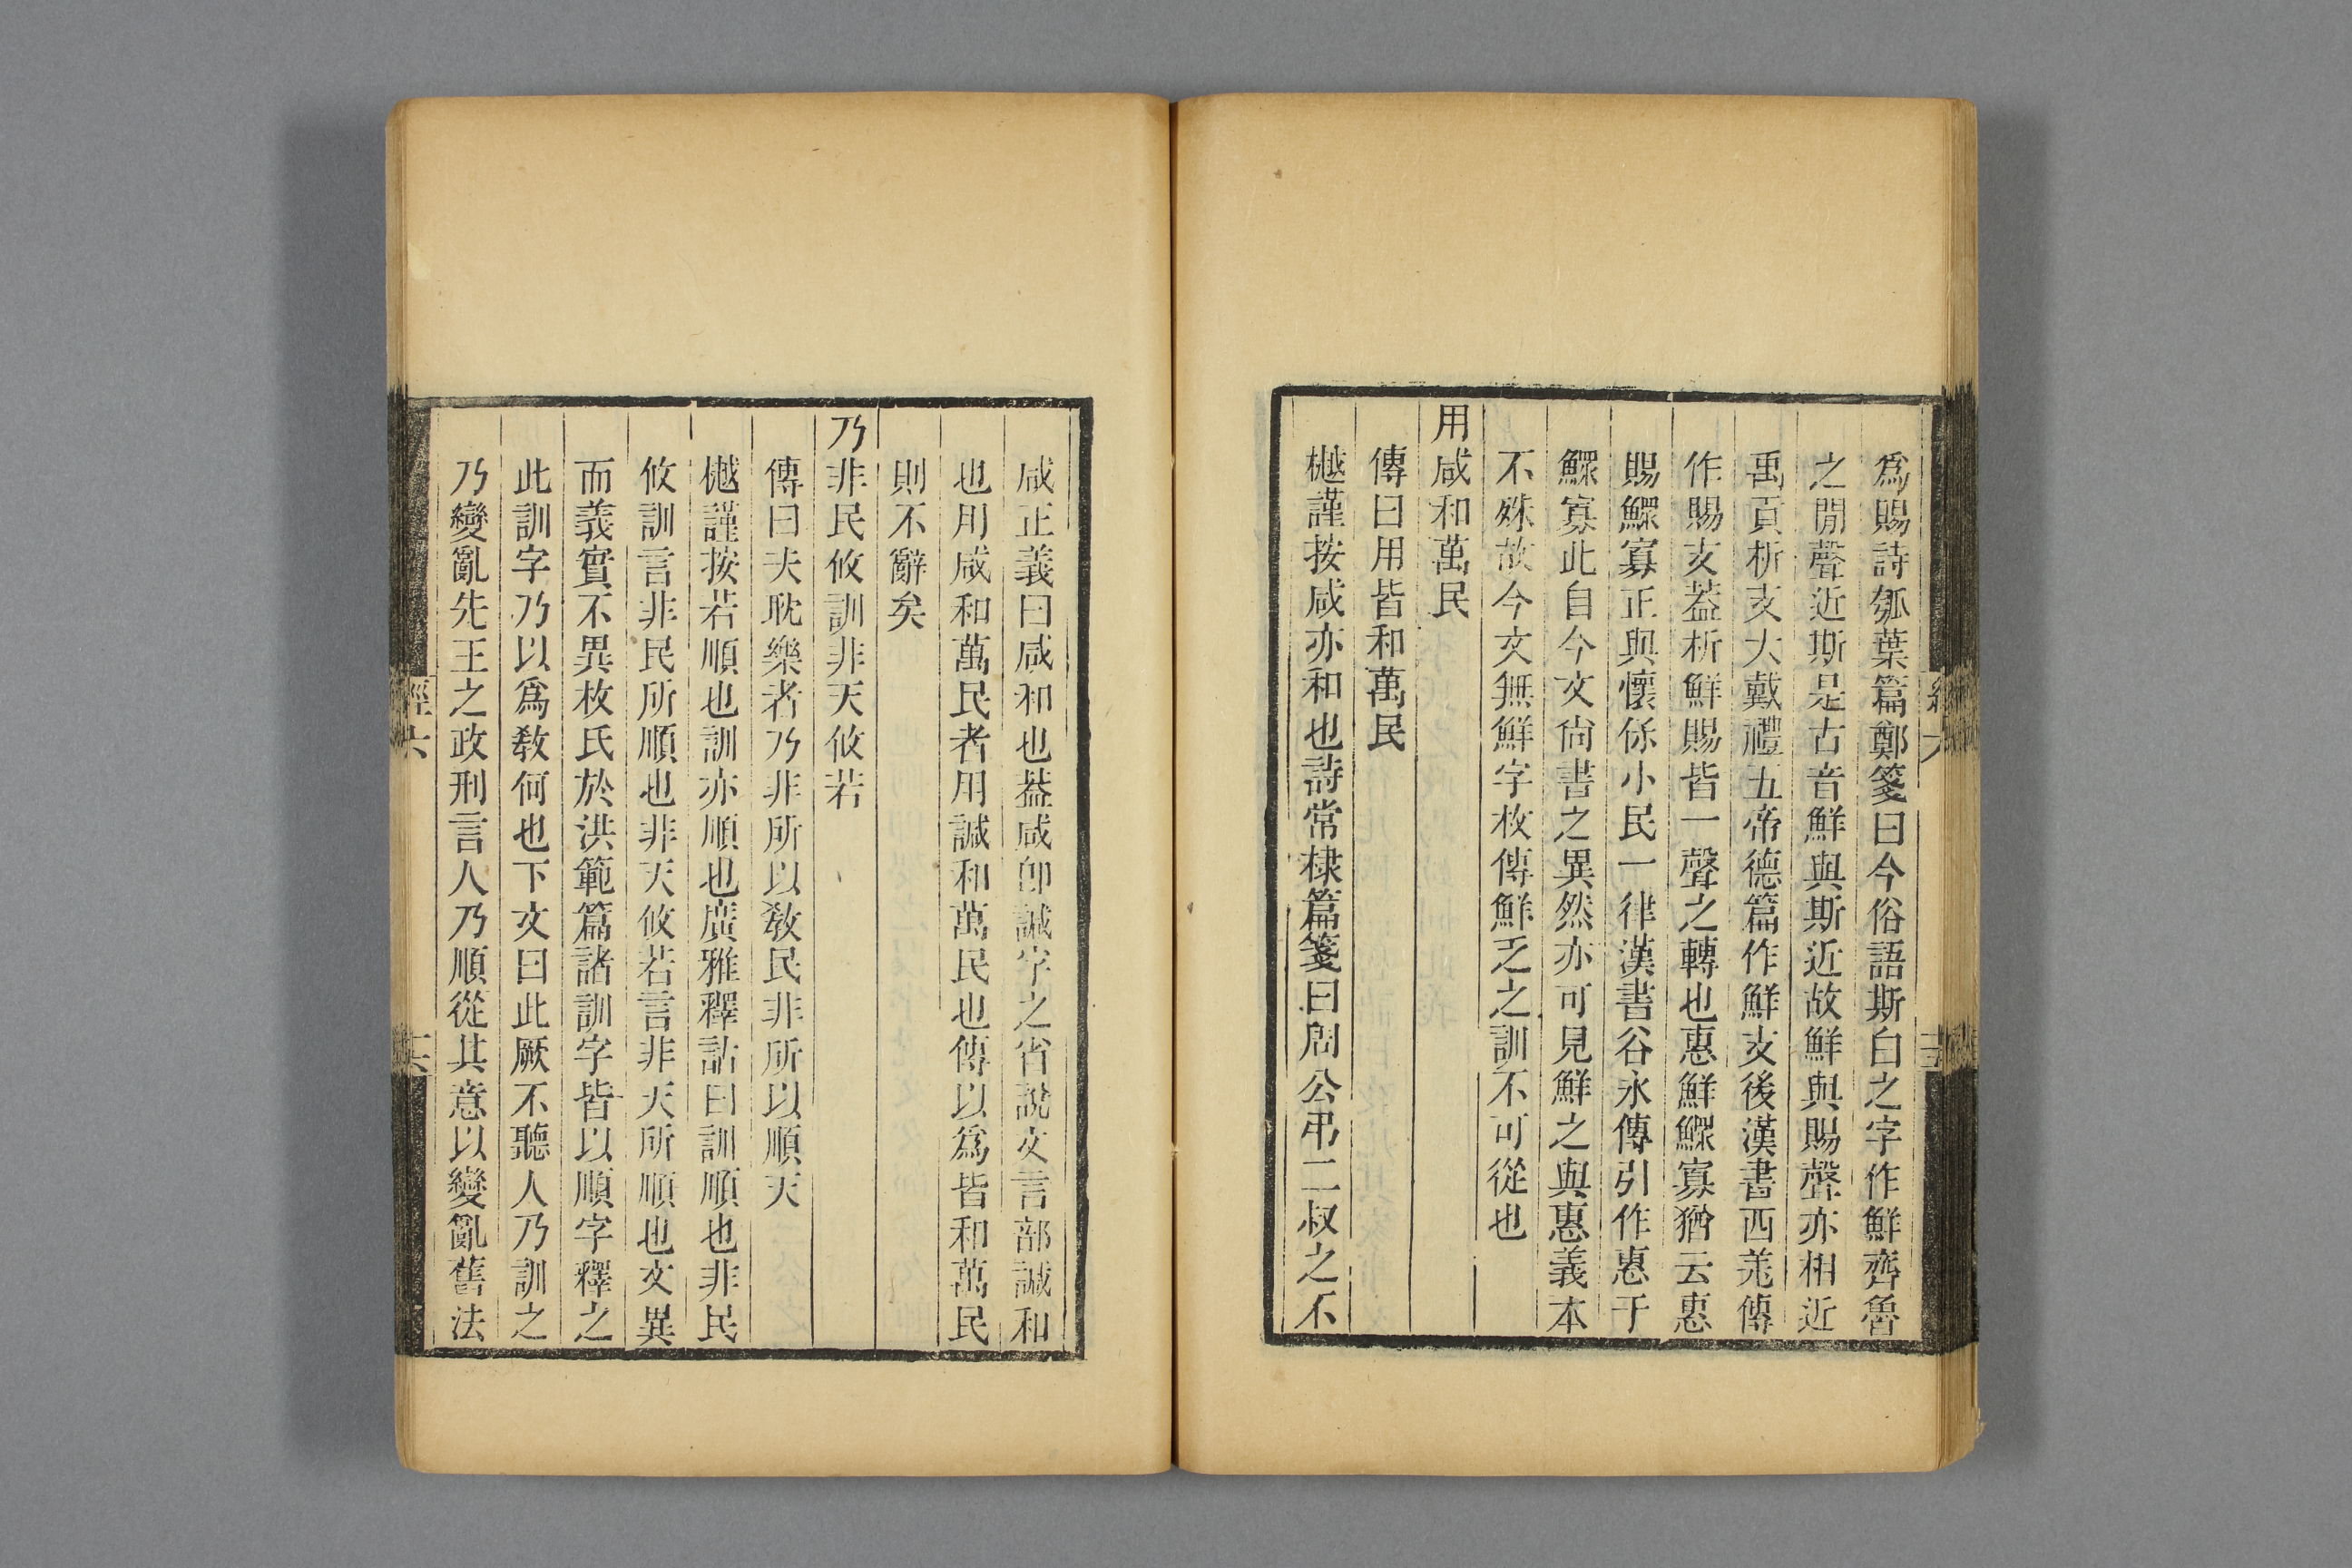 爲賜詩瓠葉篇鄭箋曰今俗語斯白之字作鮮齊魯
之閒聲近斯是古音鮮與斯近故鮮與賜聲亦相近
禹貢析支大戴禮五帝德篇作鮮支後漢書西羌傳
作賜支葢析鮮賜皆一聲之轉也惠鮮鰥寡猶云惠
賜鰥寡正與懷保小民一律漢書谷永傳引作惠于
鰥寡此自今文尙書之異然亦可見鮮之與惠義本
不殊故今文無鮮字枚傳鮮乏之訓不可從也
用咸和萬民
傳曰用皆和萬民
樾謹按咸亦和也詩常棣篇箋曰周公弔二叔之不
咸正義曰咸和也葢咸卽諴字之省說文言部諴和
也用咸和萬民者用諴和萬民也傳以爲皆和萬民
則不辭矣
乃非民攸訓非天攸若
傳曰夫耽樂者乃非所以敎民非所以順天
樾謹按若順也訓亦順也廣雅釋詁曰訓順也非民
攸訓言非民所順也非天攸若言非天所順也文異
而義實不異枚氏於洪範篇諸訓字皆以順字釋之
此訓字乃以爲敎何也下文曰此厥不聽人乃訓之
乃變亂先王之政刑言人乃順從其意以變亂舊法
經六